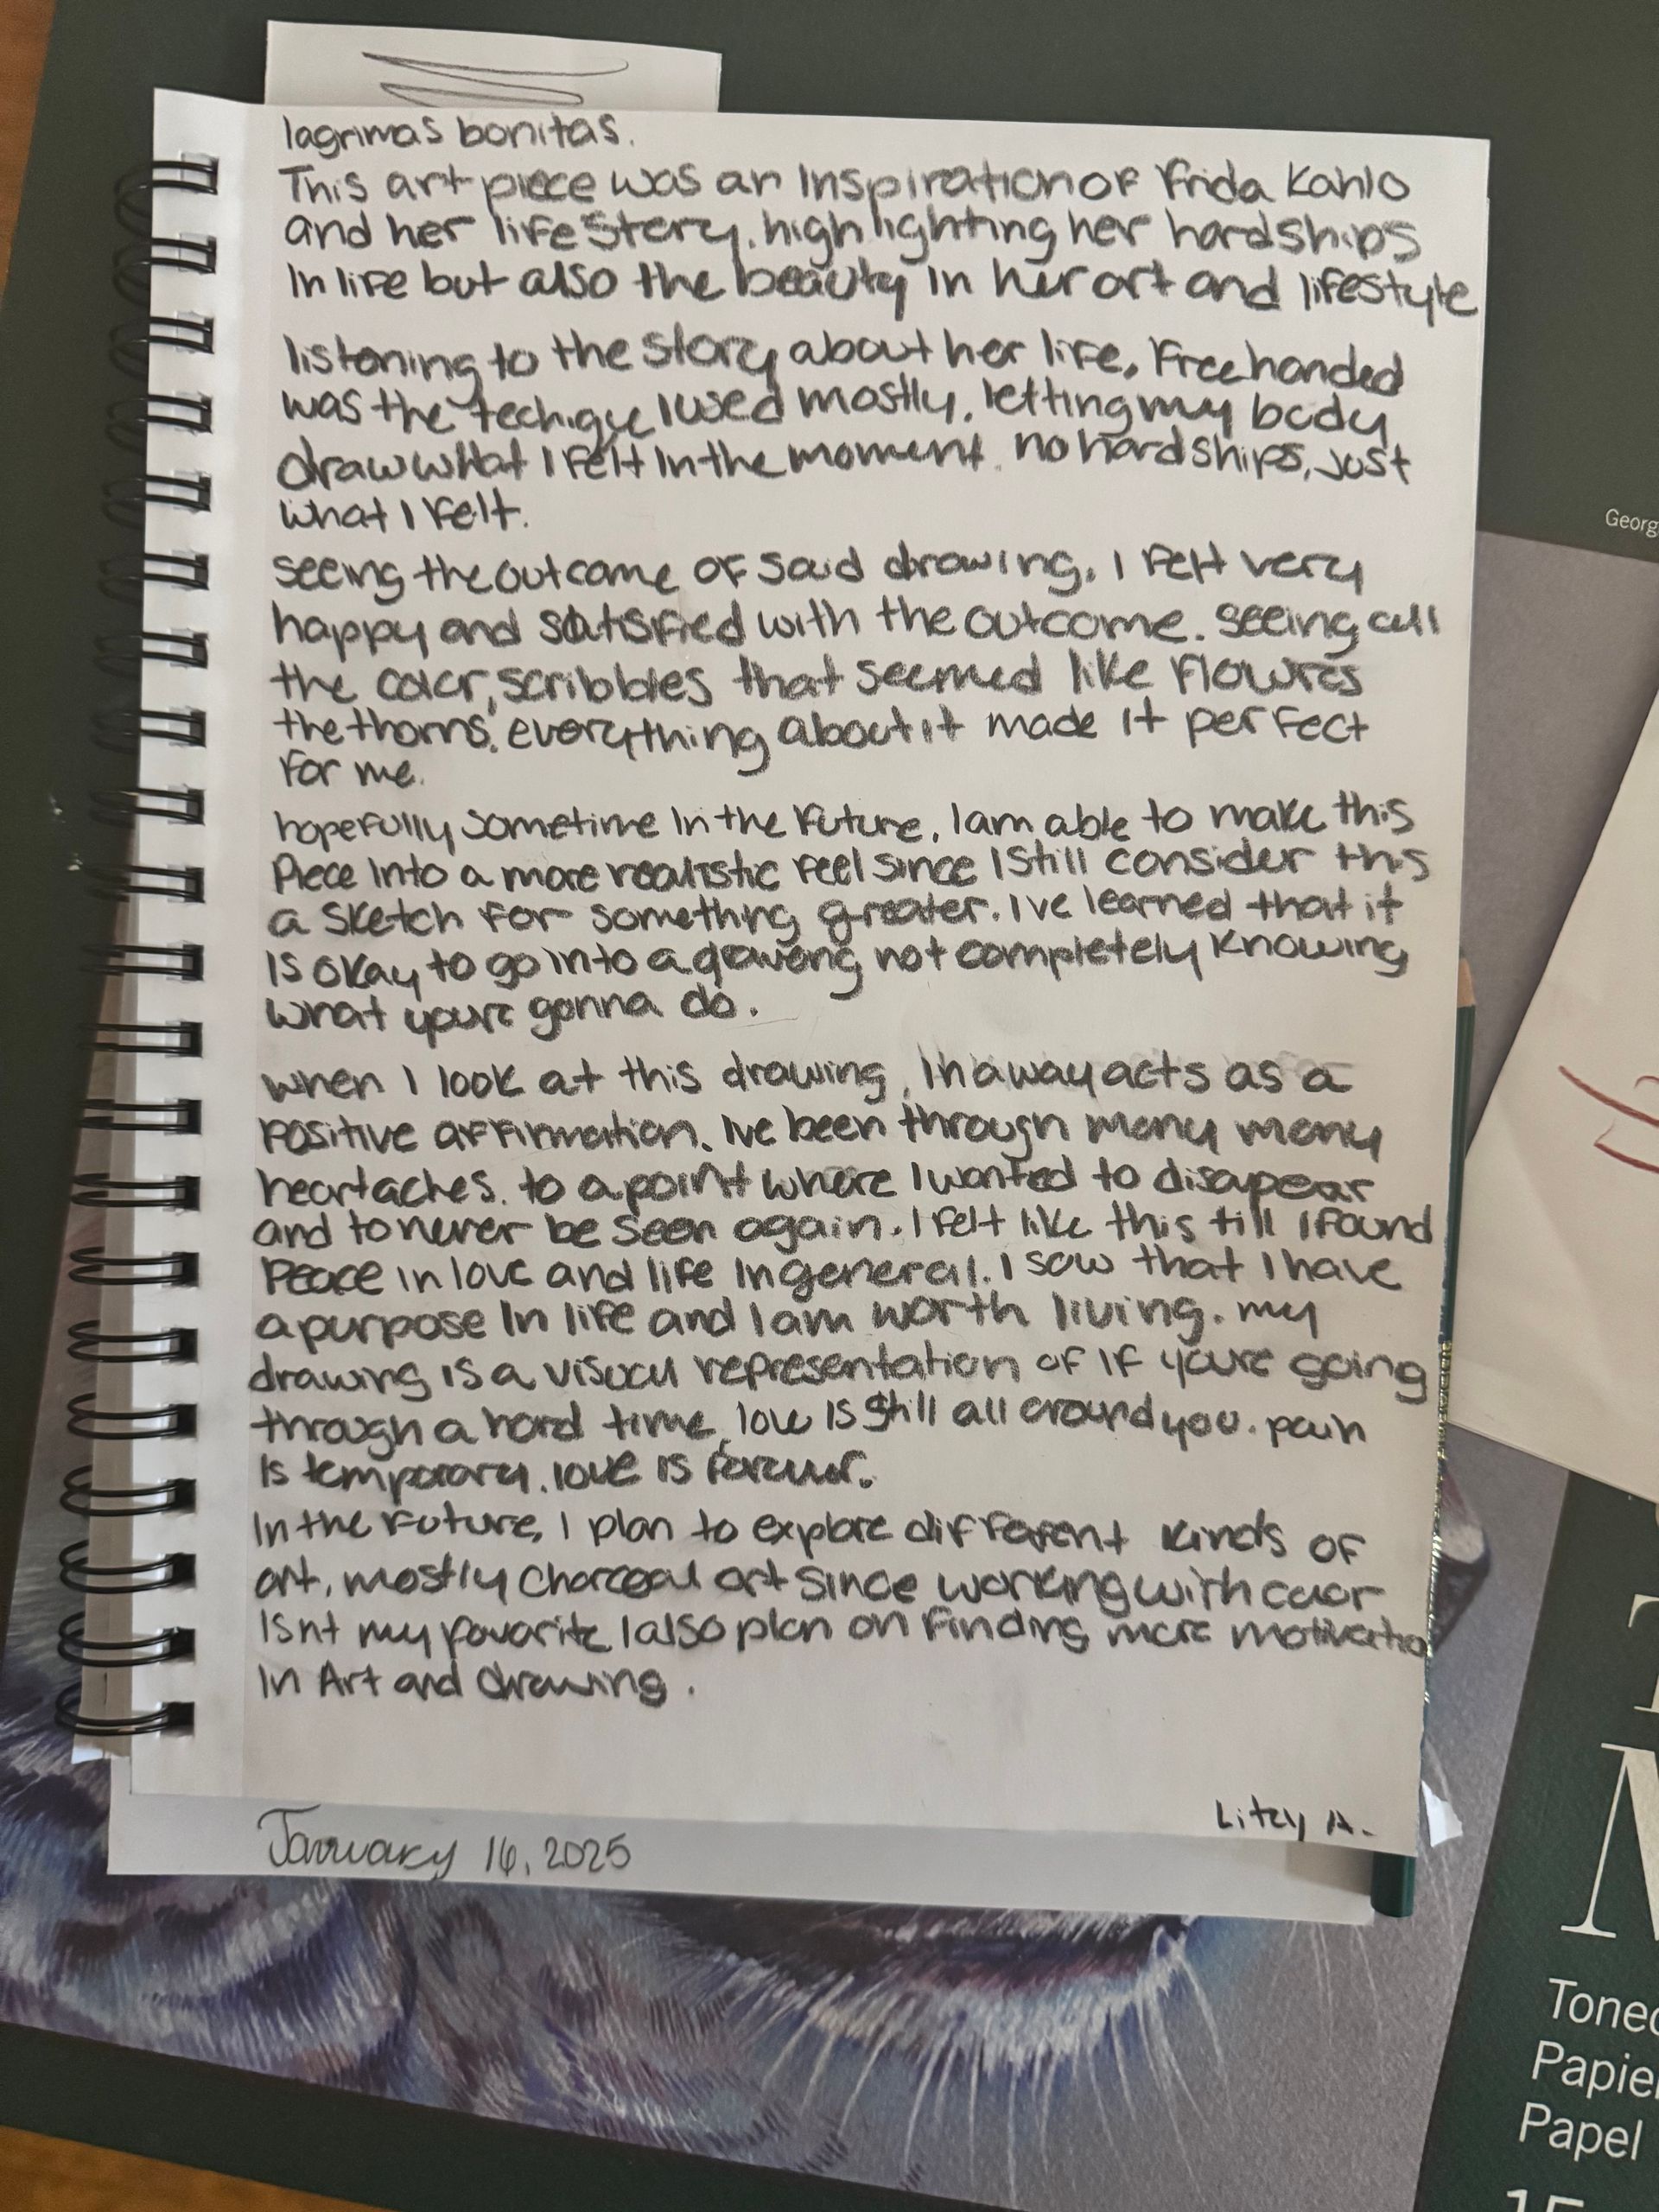 lagrimas bonitas.
This art piece was an inspiration of Frida Kahlo
and her life story, highlighting her hardships
in life but also the beauty in her art and lifestyle
listening to the story about her life, Freehanded
was the techique I used mostly, letting my body
draw what I felt in the moment. no hardships, just
what I felt.
seeing the outcome of said drawing, I felt very
happy and satisfied with the outcome. seeing all
the color, scribbles that seemed like flowres
the thorns, everything about it made it perfect
for me.
hopefully sometime in the future, I am able to make this
Piece into a more realistic feel since I still consider this
a sketch for something greater. I've learned that it
is okay to go into a drawing not completely knowing
what youre gonna do.
when I look at this drawing, In a way acts as a
positive affirmation. Ive been through many many
heartaches. to a point where I wanted to disapear
and to never be seen again. I felt like this till I found
Peace in love and life in general. I saw that I have
a purpose in life and I am worth living. my
drawing is a visual representation of if youre going
through a hard time, love is still all around you. pain
is temporary, love is forever.
In the future, I plan to explore different kinds of
art, mostly charcoal art since working with color
isnt my favorite I also plan on finding more motivatio
in Art and drawing.
Litzy A.
January 16, 2025
Georg
T
M
Toned
Papie
Papel